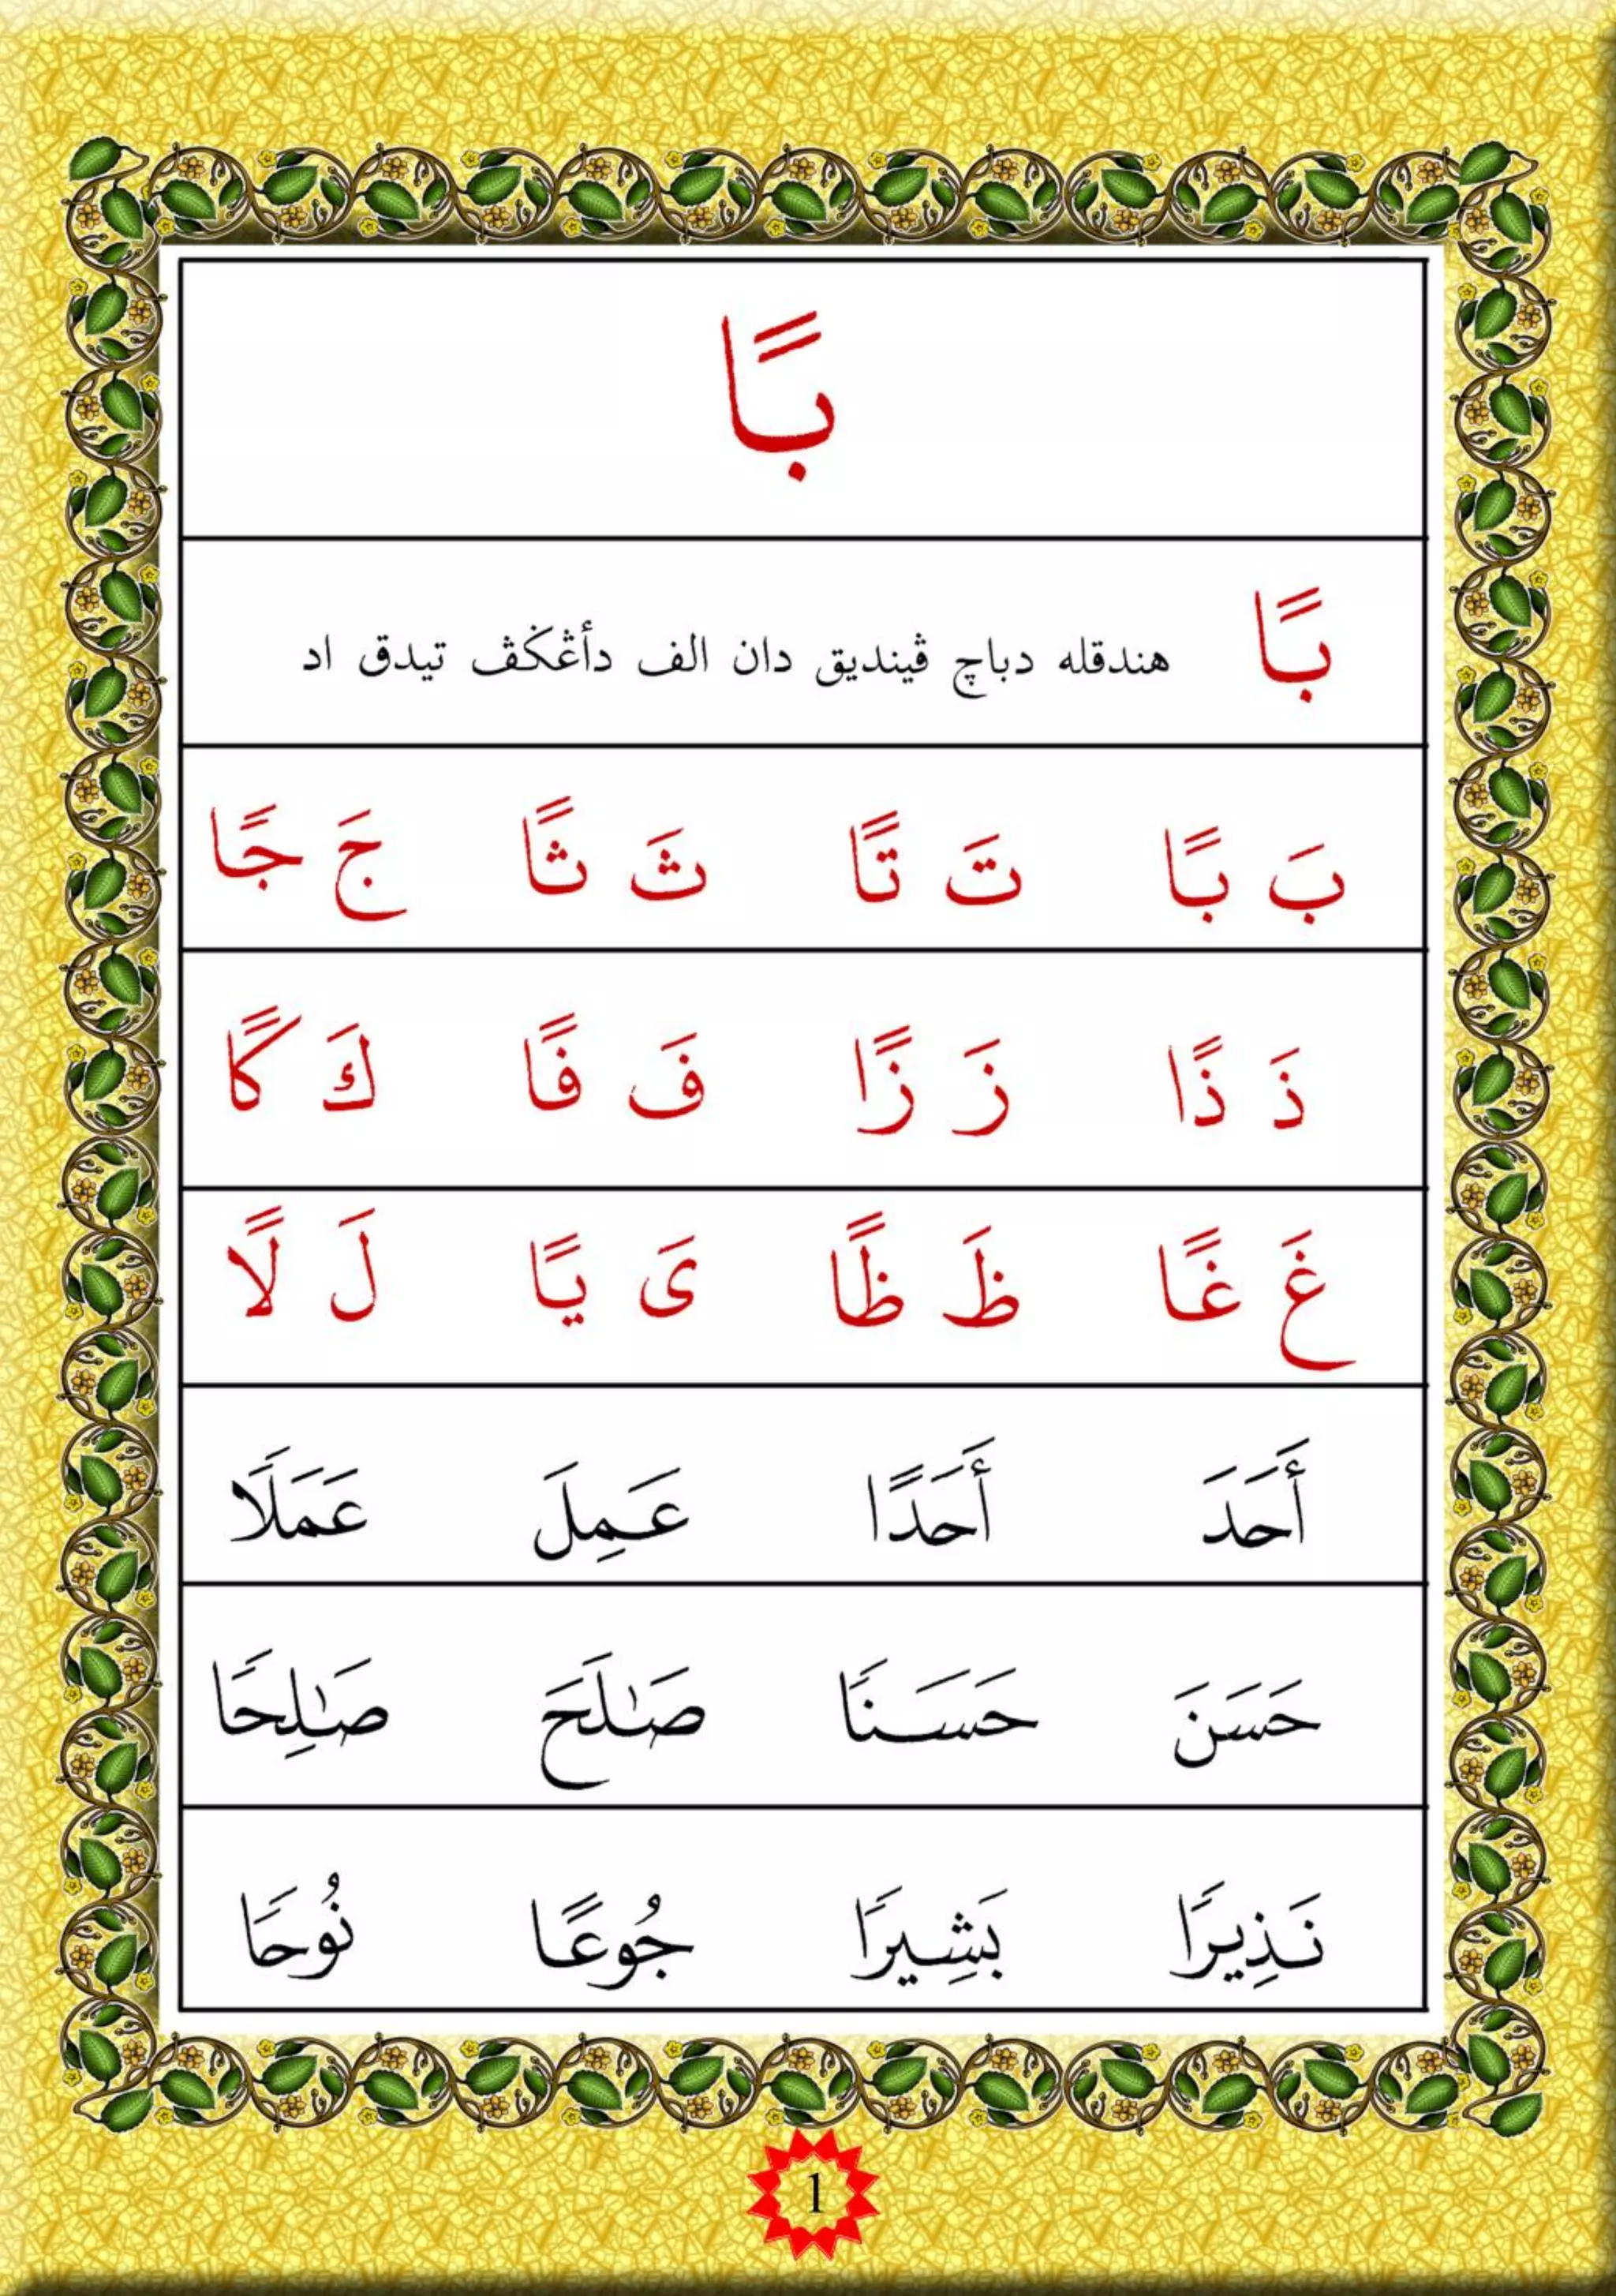 بًا
بًا هندقله دباچ ڤينديق دان الف دأڠݢڤ تيدق اد
بَ بًا تَ تًا ثَ ثًا جَ جًا
ذَ ذًا زَ زًا فَ فًا كَ كًا
غَ غًا ظَ ظًا ىَ يًا لَ لًا
أَحَدَ أَحَدًا عَمِلَ عَمَلًا
حَسَنَ حَسَنًا صَـٰلَحَ صَـٰلِحًا
نَذِيرًا بَشِيرًا جُوعًا نُوحًا
1